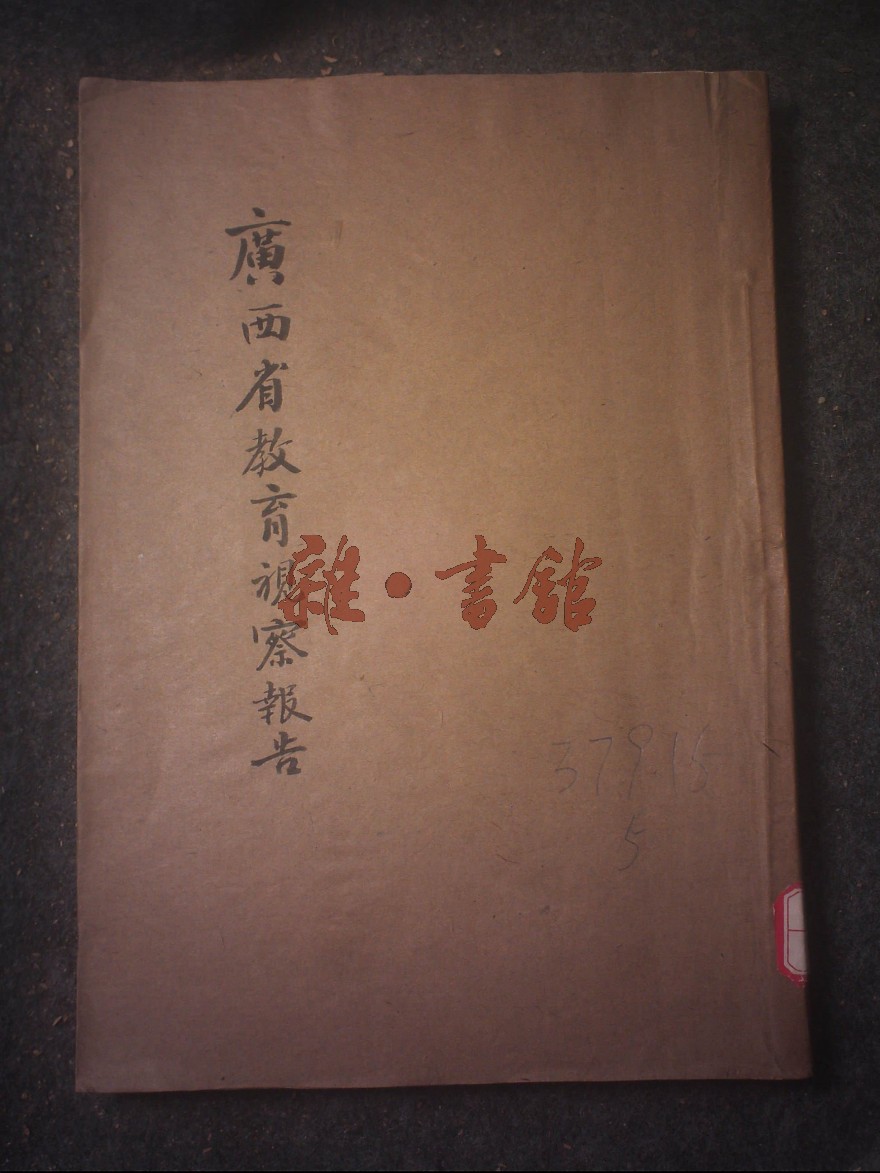 廣西省教育視察報告
雜·書館
379.15
5